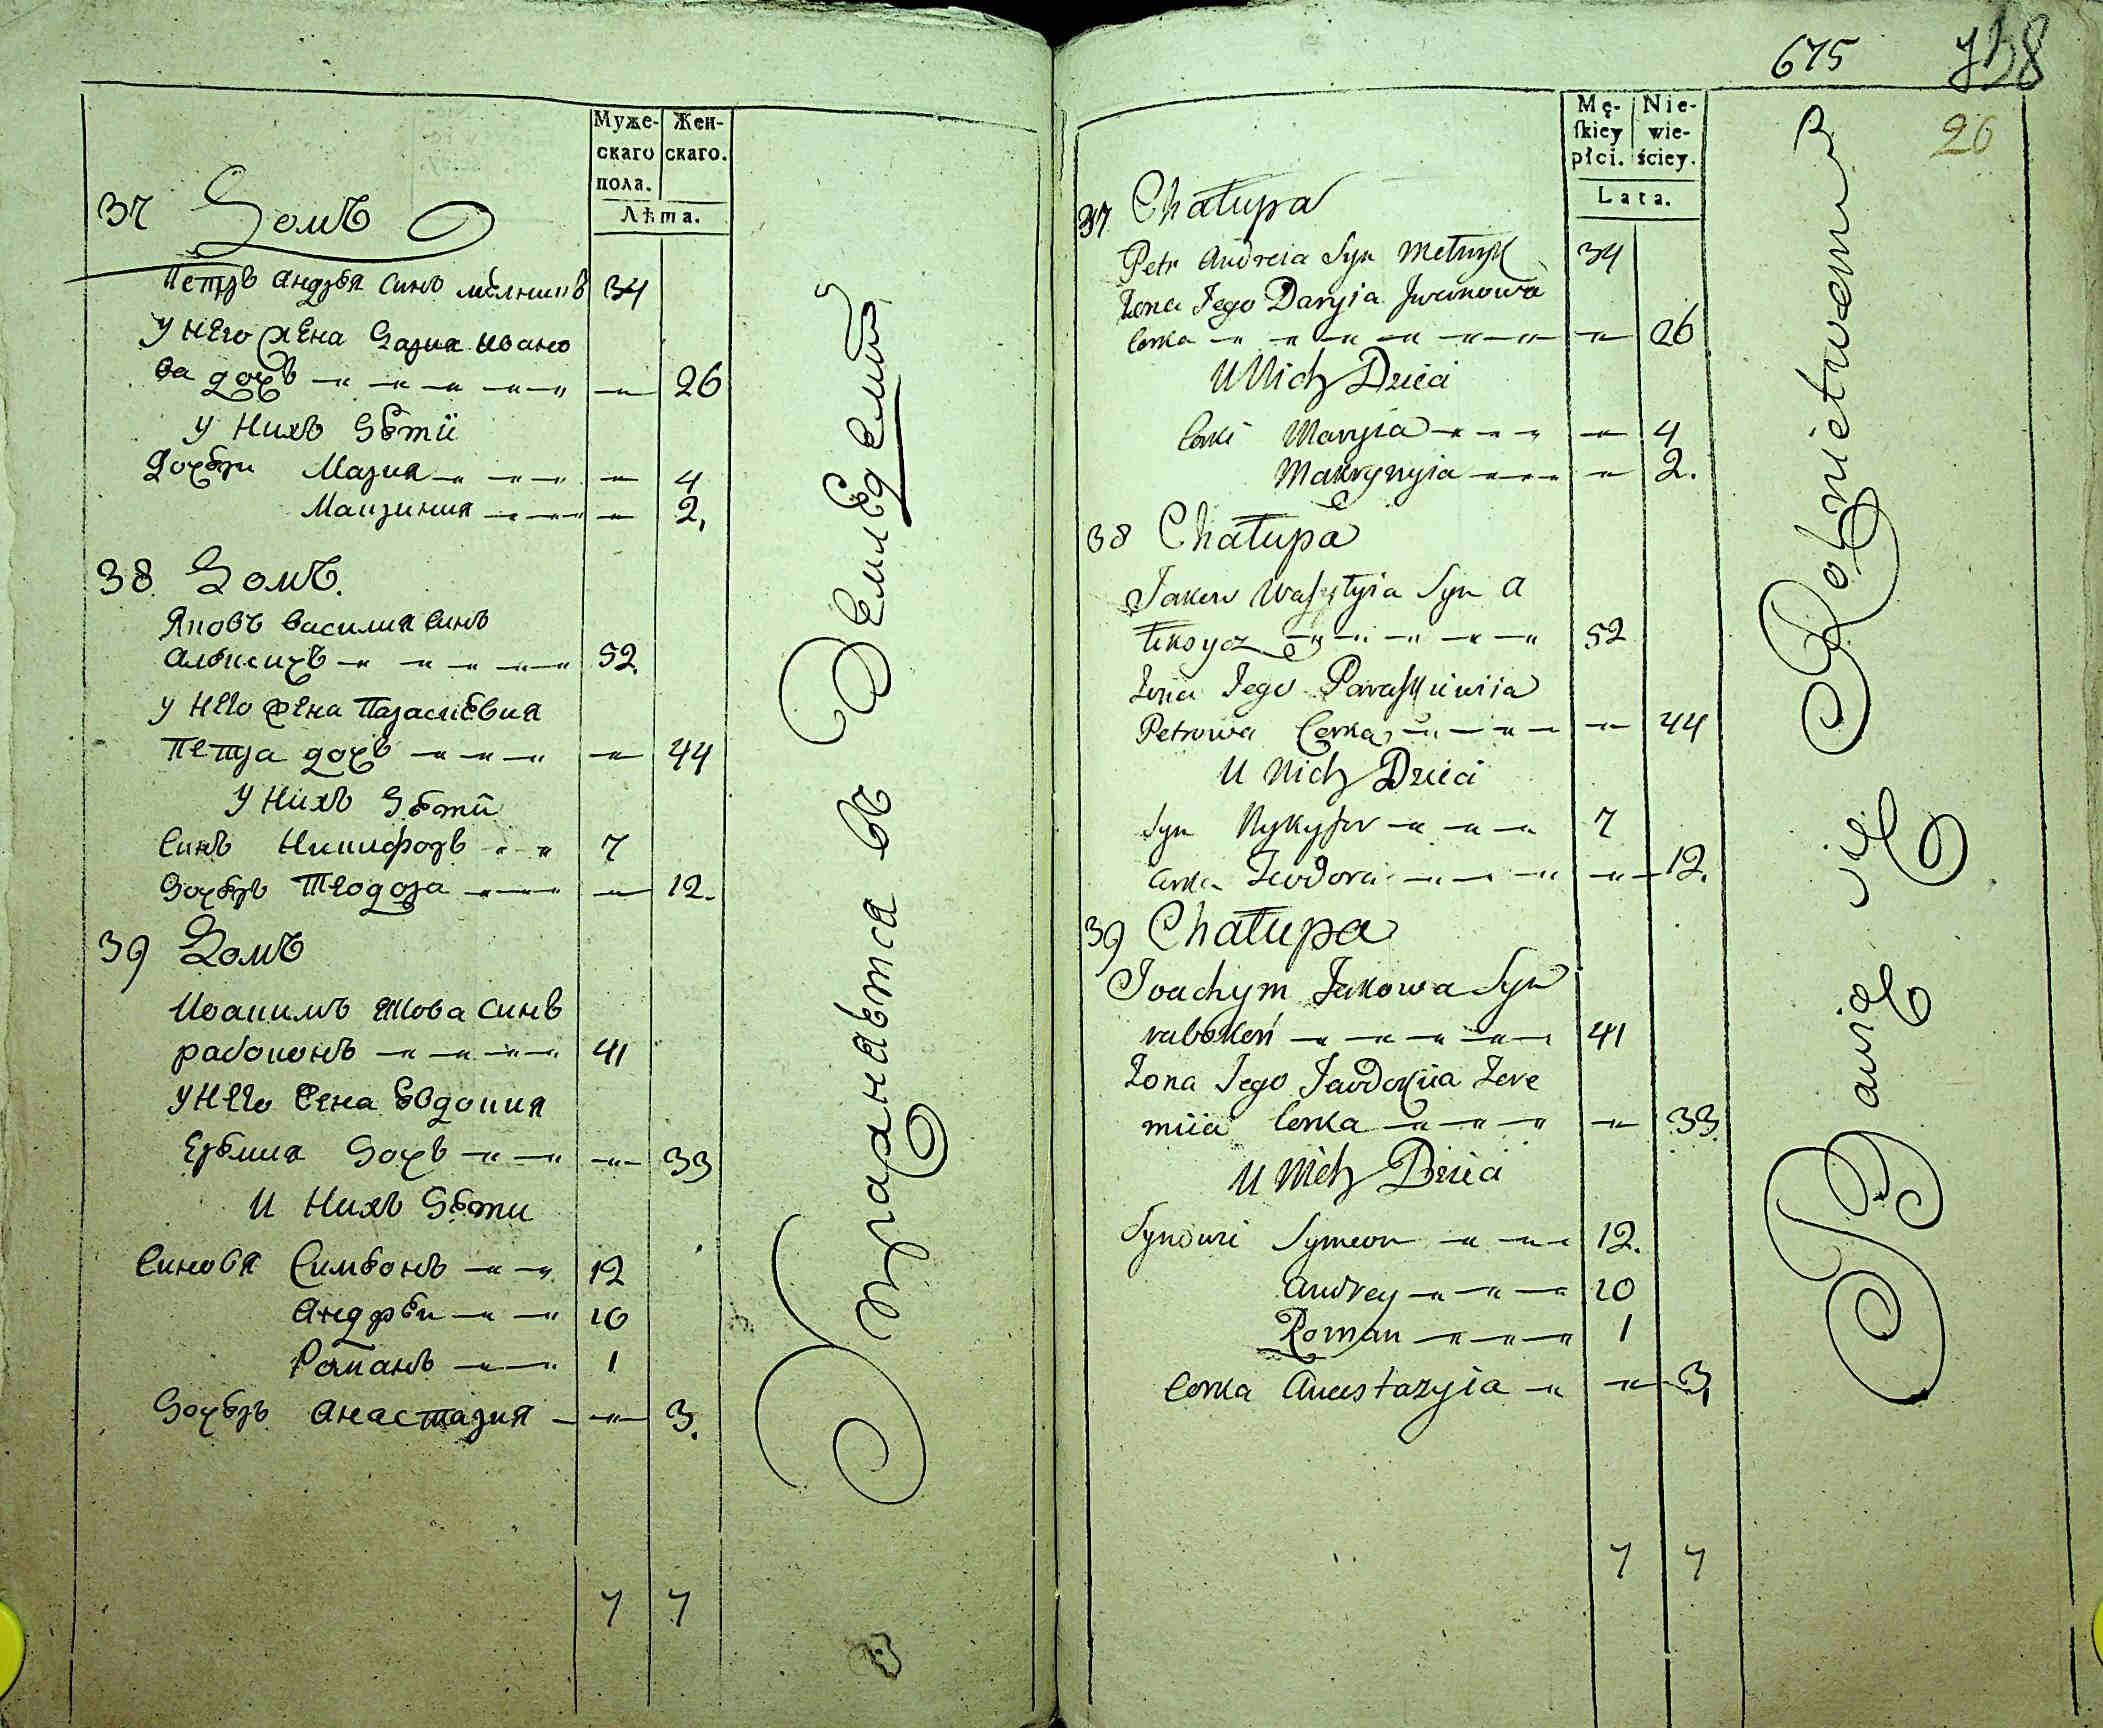 Муже-
скаго
пола.
Жен-
скаго.
Лѣта.
37 Домъ
Петръ Андрѣя Синъ мѣлникъ 34
у Него жена Дария Ивано
ва дочъ 26
у Нихъ Дѣти
Дочѣри Мария 4
Макриния 2.
38 Домъ.
Яковъ Василия Синъ
Алѣксичъ 52
у Него жена Параскѣвия
Петра дочъ 44
у Нихъ Дѣти
Синъ Никифоръ 7
Дочѣръ Теодора 12.
39 Домъ
Иоакимъ Якова Синъ
рабоконь 41
у Него жена Евдокия
Ерѣмия Дочъ 33
и Нихъ Дѣти
Синовя Симѣонъ 12
Андрѣи 10
Романъ 1
Дочѣръ Анастазия 3.
7 7
Упражнаьтса въ Земледелий
675
738
26
Mę-
ſkiey
płci.
Nie-
wie-
ściey.
Lata.
37 Chałupa
Petr Andreia Syn Mełnyk 34
Żona Jego Daryia Iwanowa
Corka 26
U Nich Dzieci
Corki Maryia 4
Makrynyia 2.
38 Chałupa
Jakow Wasylyia Syn A
łeksycz 52
Żona Jego Paraskiewiia
Petrowa Corka 44
U Nich Dzieci
Syn Nykyfor 7
Corka Teodora 12.
39 Chałupa
Joachym Jakowa Syn
rabokoń 41
Żona Jego Jawdokiia Jere
miia Corka 33
U Nich Dzieci
Synowi Symeon 12.
Andrey 10
Roman 1
Corka Anastazyia 3
7 7
Bawią się Rolnictwem